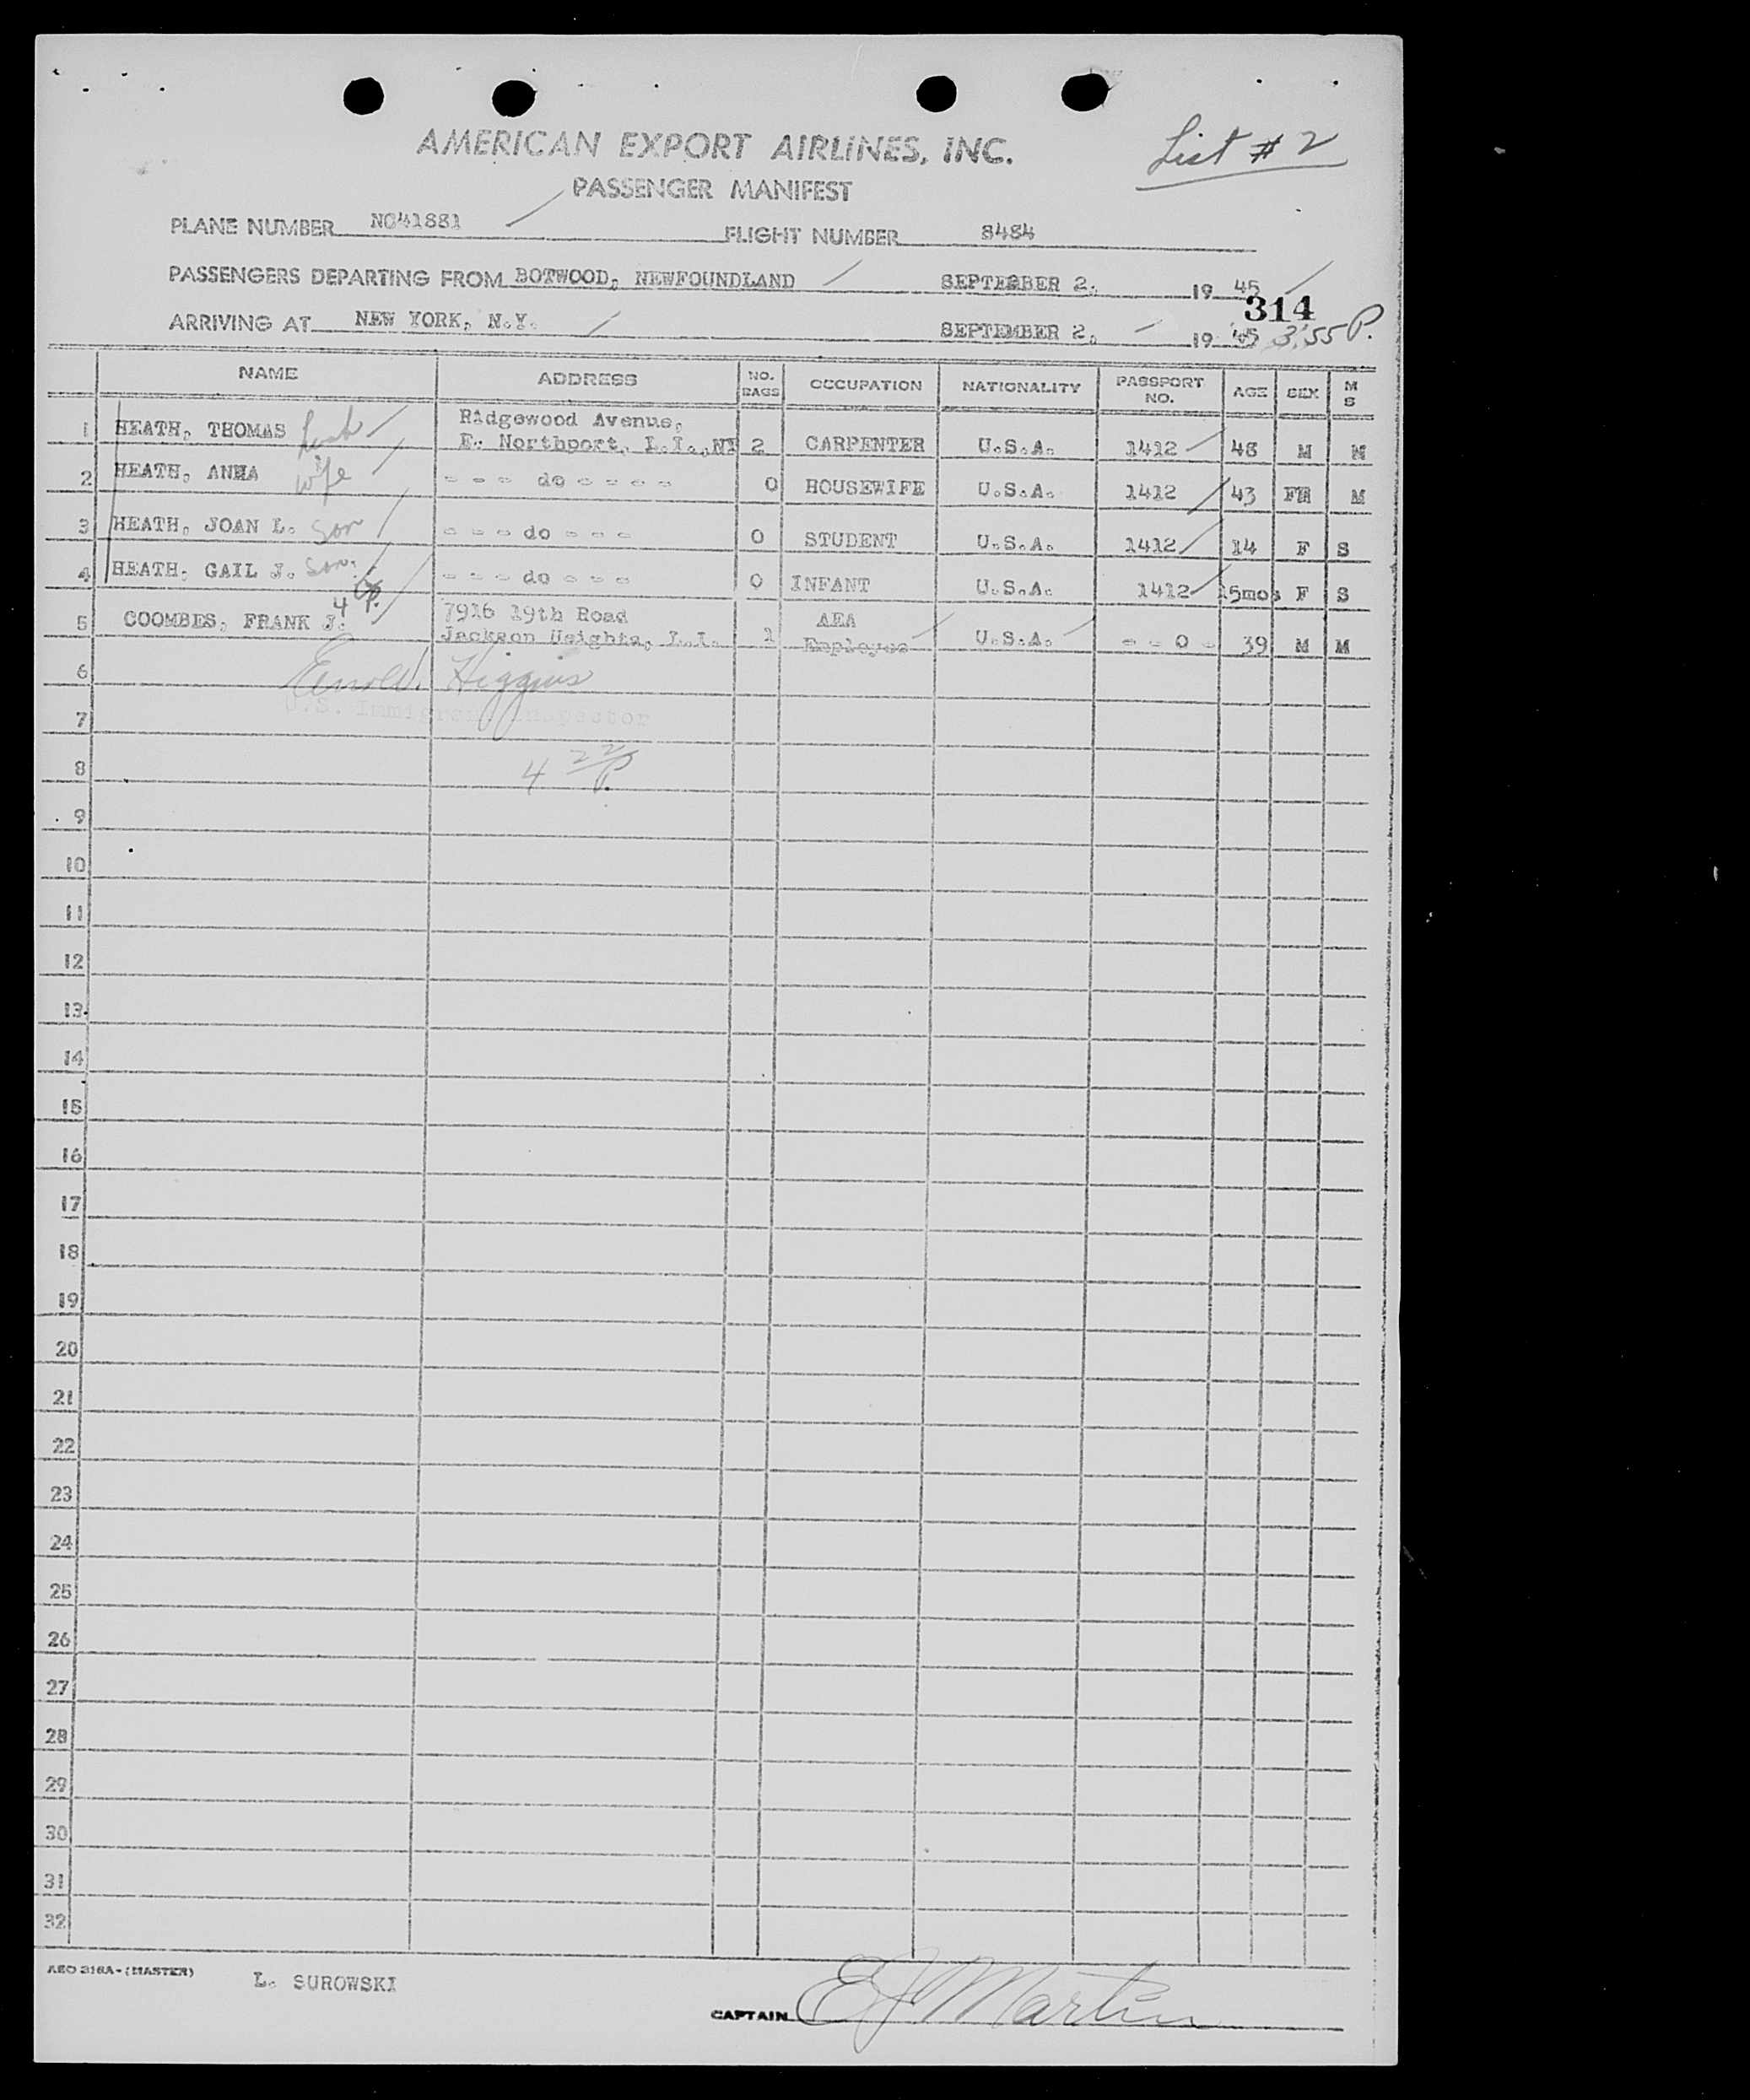 AMERICAN EXPORT AIRLINES, INC.
List # 2
PASSENGER MANIFEST
PLANE NUMBER NC41881 FLIGHT NUMBER 8484
PASSENGERS DEPARTING FROM BOTWOOD, NEWFOUNDLAND SEPTEMBER 2, 19 45
314
ARRIVING AT NEW YORK, N.Y. SEPTEMBER 2, 19 45 3:55 P.
NAME ADDRESS NO. BAGS OCCUPATION NATIONALITY PASSPORT NO. AGE SEX M S
1 HEATH, THOMAS Ridgewood Avenue, E. Northport, L.I.,NY 2 CARPENTER U.S.A. 1412 48 M M
2 HEATH, ANNA wife - - - do - - - - - 0 HOUSEWIFE U.S.A. 1412 43 FM M
3 HEATH, JOAN L. son - - - do - - - 0 STUDENT U.S.A. 1412 14 F S
4 HEATH, GAIL J. son - - - do - - - 0 INFANT U.S.A. 1412 15mos F S
4 UP.
5 COOMBES, FRANK J. 7916 19th Road Jackson Heights, L.I. 1 AEA Employee U.S.A. - - 0 - 39 M M
6 Higgins
U.S. Immigrant Inspector
7
4 22 P.
8
9
10
11
12
13
14
15
16
17
18
19
20
21
22
23
24
25
26
27
28
29
30
31
32
AEO 318A-(MASTER) L. SUROWSKI
CAPTAIN E J Martin